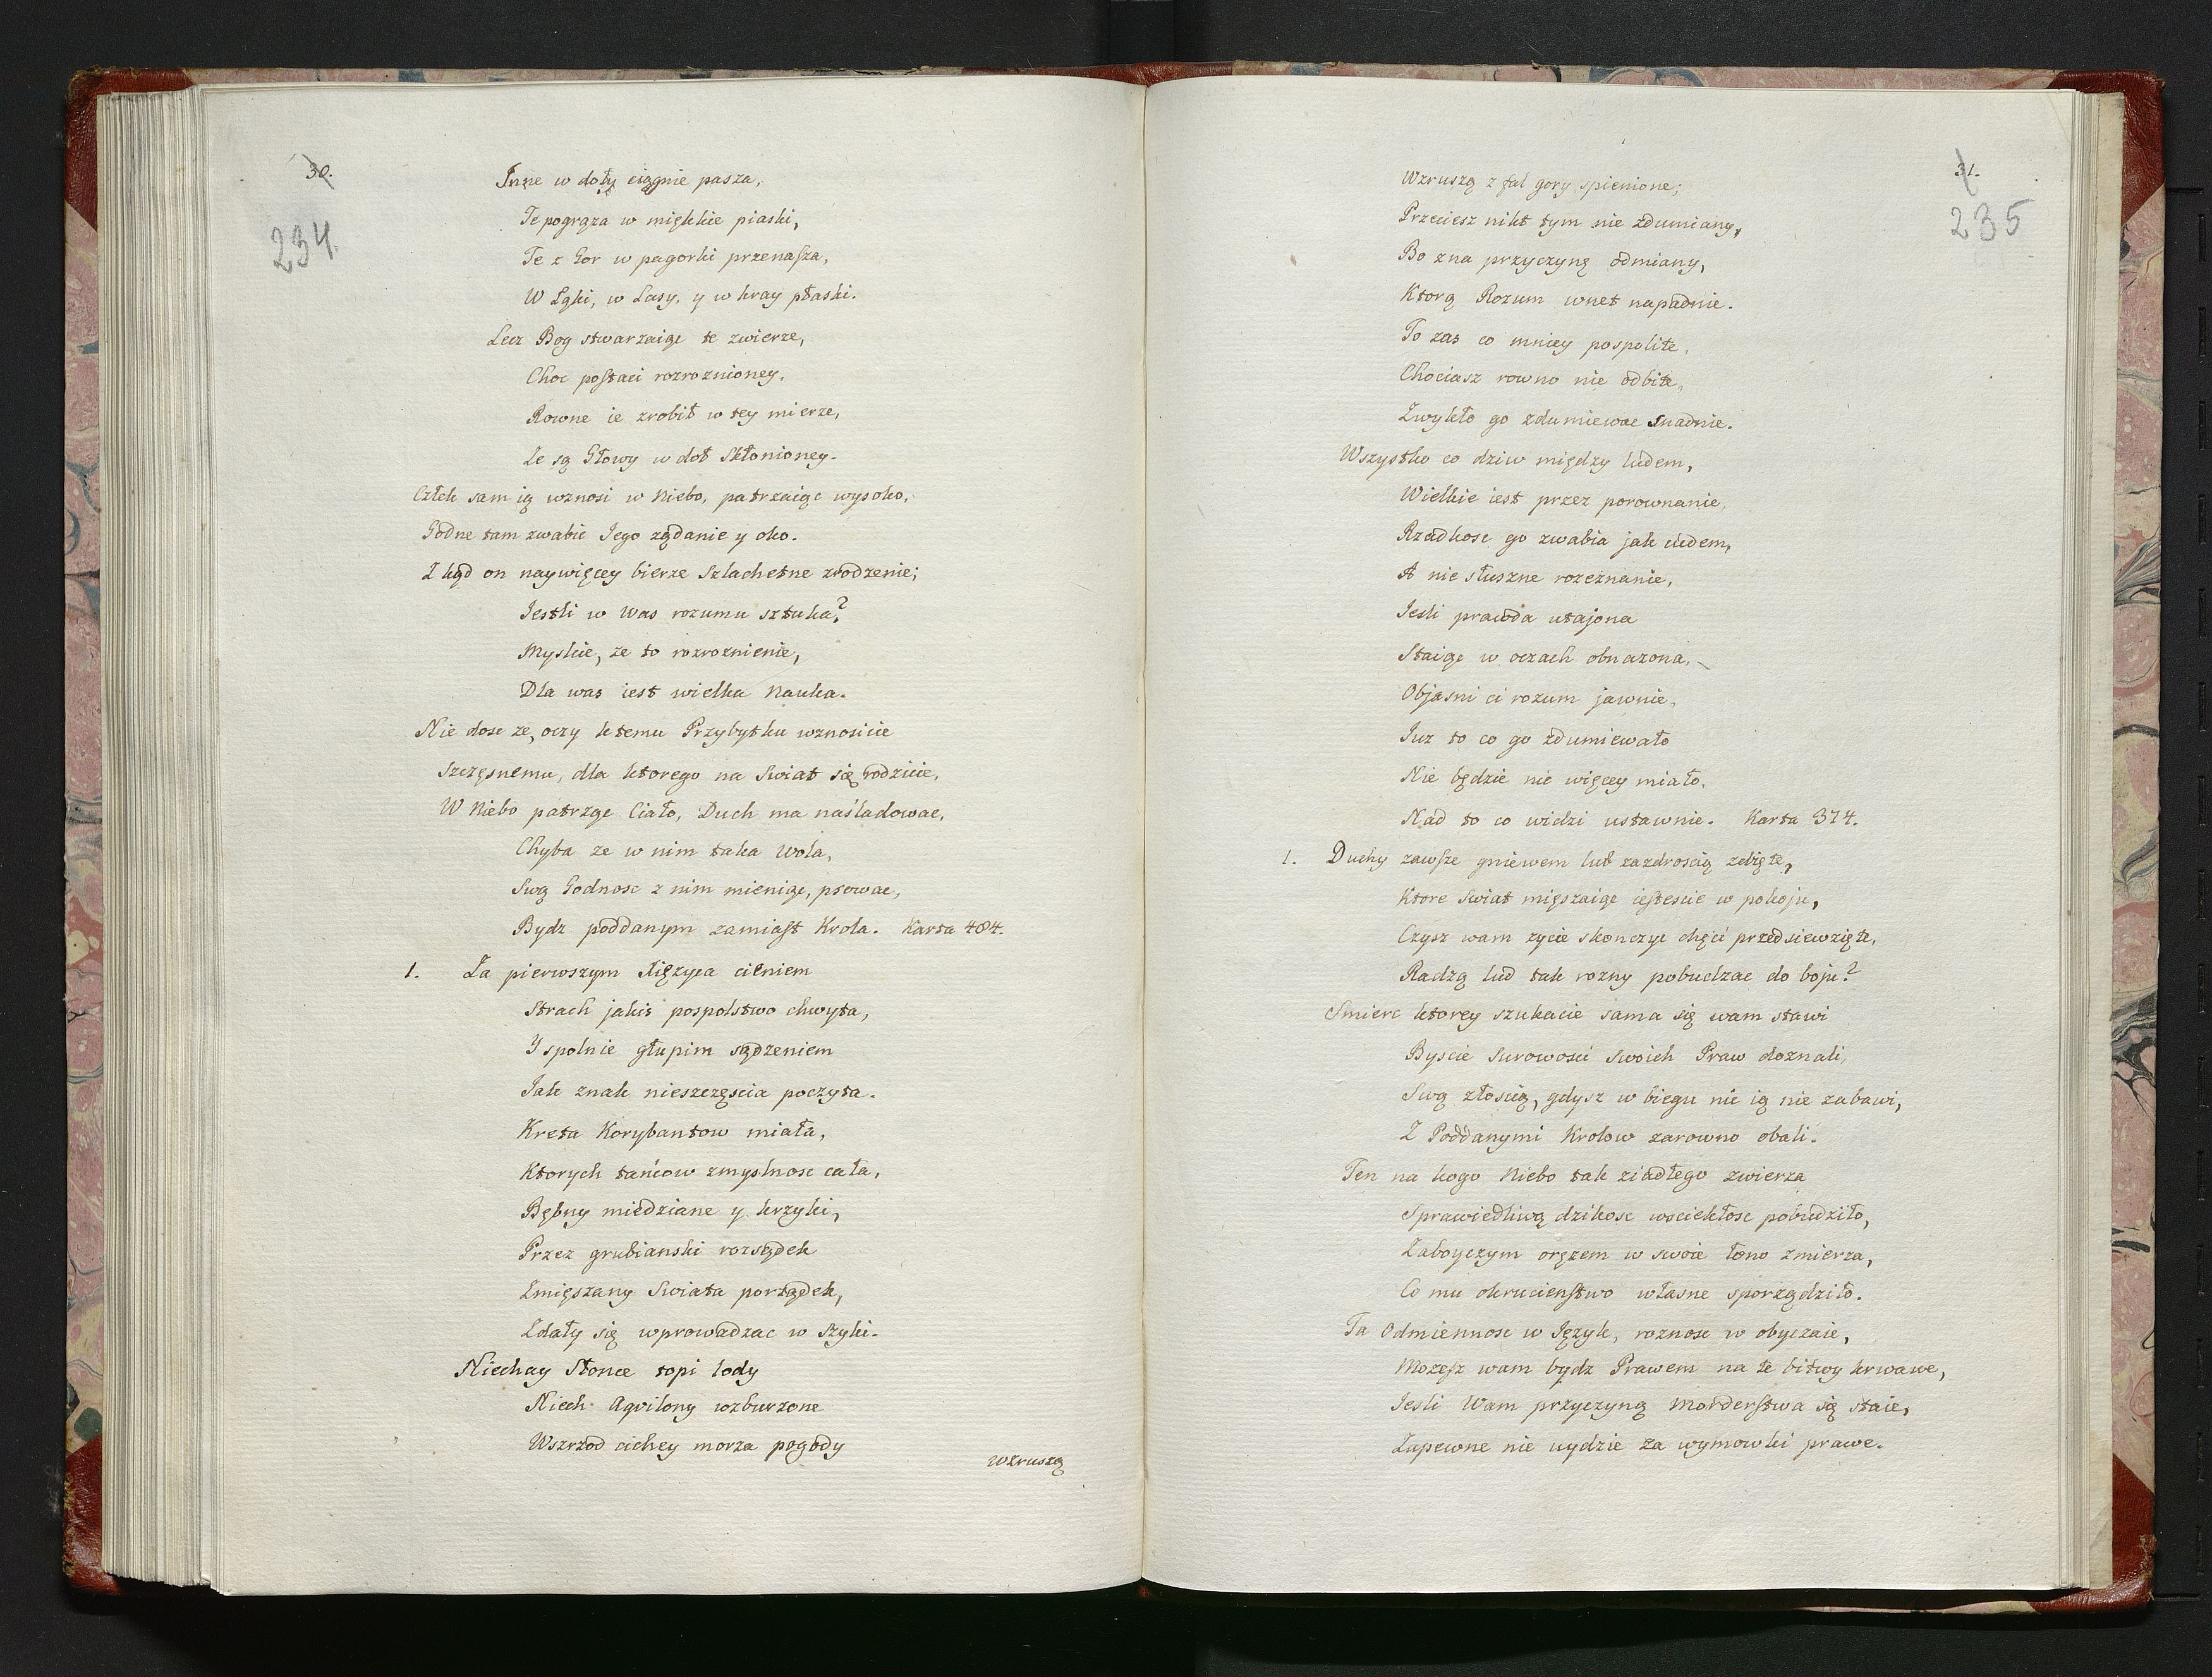 30.
234.
Inne w doły ciągnie pasza,
Te pogrąza w miękkie piaski,
Te z Gor w pagorki przenasza,
W Łąki, w Lasy, y w kray płaski.
Lecz Bog stwarzaiąc te zwierze,
Choc postaci rozroznioney,
Rowne ie zrobił w tey mierze,
Ze są Głowy w doł Skłonioney.
Człek sam ią wznosi w Niebo, patrzaiąc wysoko,
Godne tam zwabic Iego ządanie y oko.
Z kąd on naywięcey bierze Szlachetne zrodzenie;
Iestli w Was rozumu sztuka?
Myslcie, ze to rozroznienie,
Dla was iest wielka Nauka.
Nie dosc ze, oczy k temu Przybytku wznosicie
Szczęsnemu, dla ktorego na Swiat się rodzicie,
W Niebo patrząc Ciało, Duch ma naśladowac,
Chyba ze w nim taka Wola,
Swą Godnosc z nim mieniąc, psowac,
Bydz poddanym zamiast Krola. Karta 484.
1. Za pierwszym Xięzyca cieniem
Strach jakis pospolstwo chwyta,
Y spolnie głupim sądzeniem
Iak znak nieszczęscia poczyta.
Kreta Korybantow miała,
Ktorych tańcow zmyslnosc cała,
Bębny miedziane y krzyki,
Przez grubianski rozsądek
Zmięszany Swiata porządek,
Zdały się wprowadzac w Szyki.
Niechay Słonce topi lody
Niech Aqvilony wzburzone
Wszrzod cichey morza pogody
Wzruszą
31.
235
Wzruszą z fal gory spienione;
Przeciesz nikt tym nie zdumiany,
Bo zna przyczynę odmiany,
Ktorą Rozum wnet napadnie.
To zas co mniey pospolite,
Chociasz rowno nie odbite,
Zwykło go zdumiewac snadnie.
Wszystko co dziw między ludem,
Wielkie iest przez porownanie,
Rzadkosc go zwabia jak cudem,
A nie słuszne rozeznanie,
Iesli prawda utajona
Staiąc w oczach obnazona,
Objasni ci rozum jawnie,
Iuz to co go zdumiewało
Nie będzie nic więcey miało,
Nad to co widzi ustawnie. Karta 374.
1. Duchy zawsze gniewem lub zazdroscią zdięte,
Ktore Swiat mięszaiąc iestescie w pokoju,
Czysz wam zycie skonczyc chęci przedsiewzięte,
Radzą lud tak rozny pobudzac do boju?
Smierc ktorey szukacie sama się wam stawi
Byscie Surowosci Swoich Praw doznali,
Swą złoscią, gdysz w biegu nic ią nie zabawi,
Z Poddanymi Krolow zarowno obali.
Ten na kogo Niebo tak ziadłego zwierza
Sprawiedliwą dzikosc wsciekłosc pobudziło,
Zaboyczym oręzem w swoie łono zmierza,
Co mu okrucienstwo własne sporządziło.
Ta Odmiennosc w Ięzyk, roznosc w obyczaie,
Mozesz wam bydz Prawem na te bitwy krwawe,
Iesli Wam przyczyną Morderstwa się staie,
Zapewne nie uydzie za wymowki prawe.